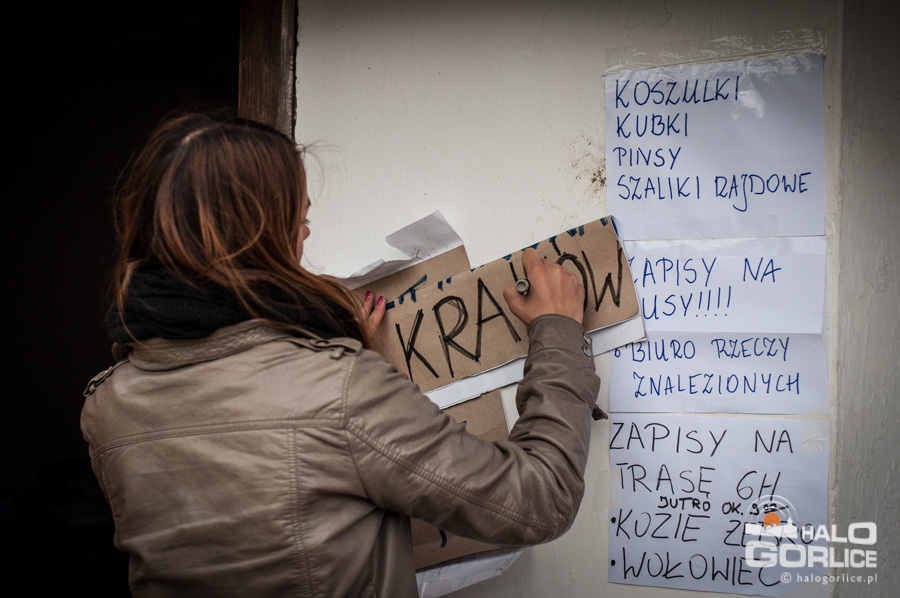 KRAKÓW
KOSZULKI
KUBKI
PINSY
SZALIKI RAJDOWE
ZAPISY NA
USY!!!!
BIURO RZECZY
ZNALEZIONYCH
ZAPISY NA
TRASĘ 6H
JUTRO OK. 9
• KOZIE
• WOŁOWIEC
HALO
GORLICE
© halogorlice.pl